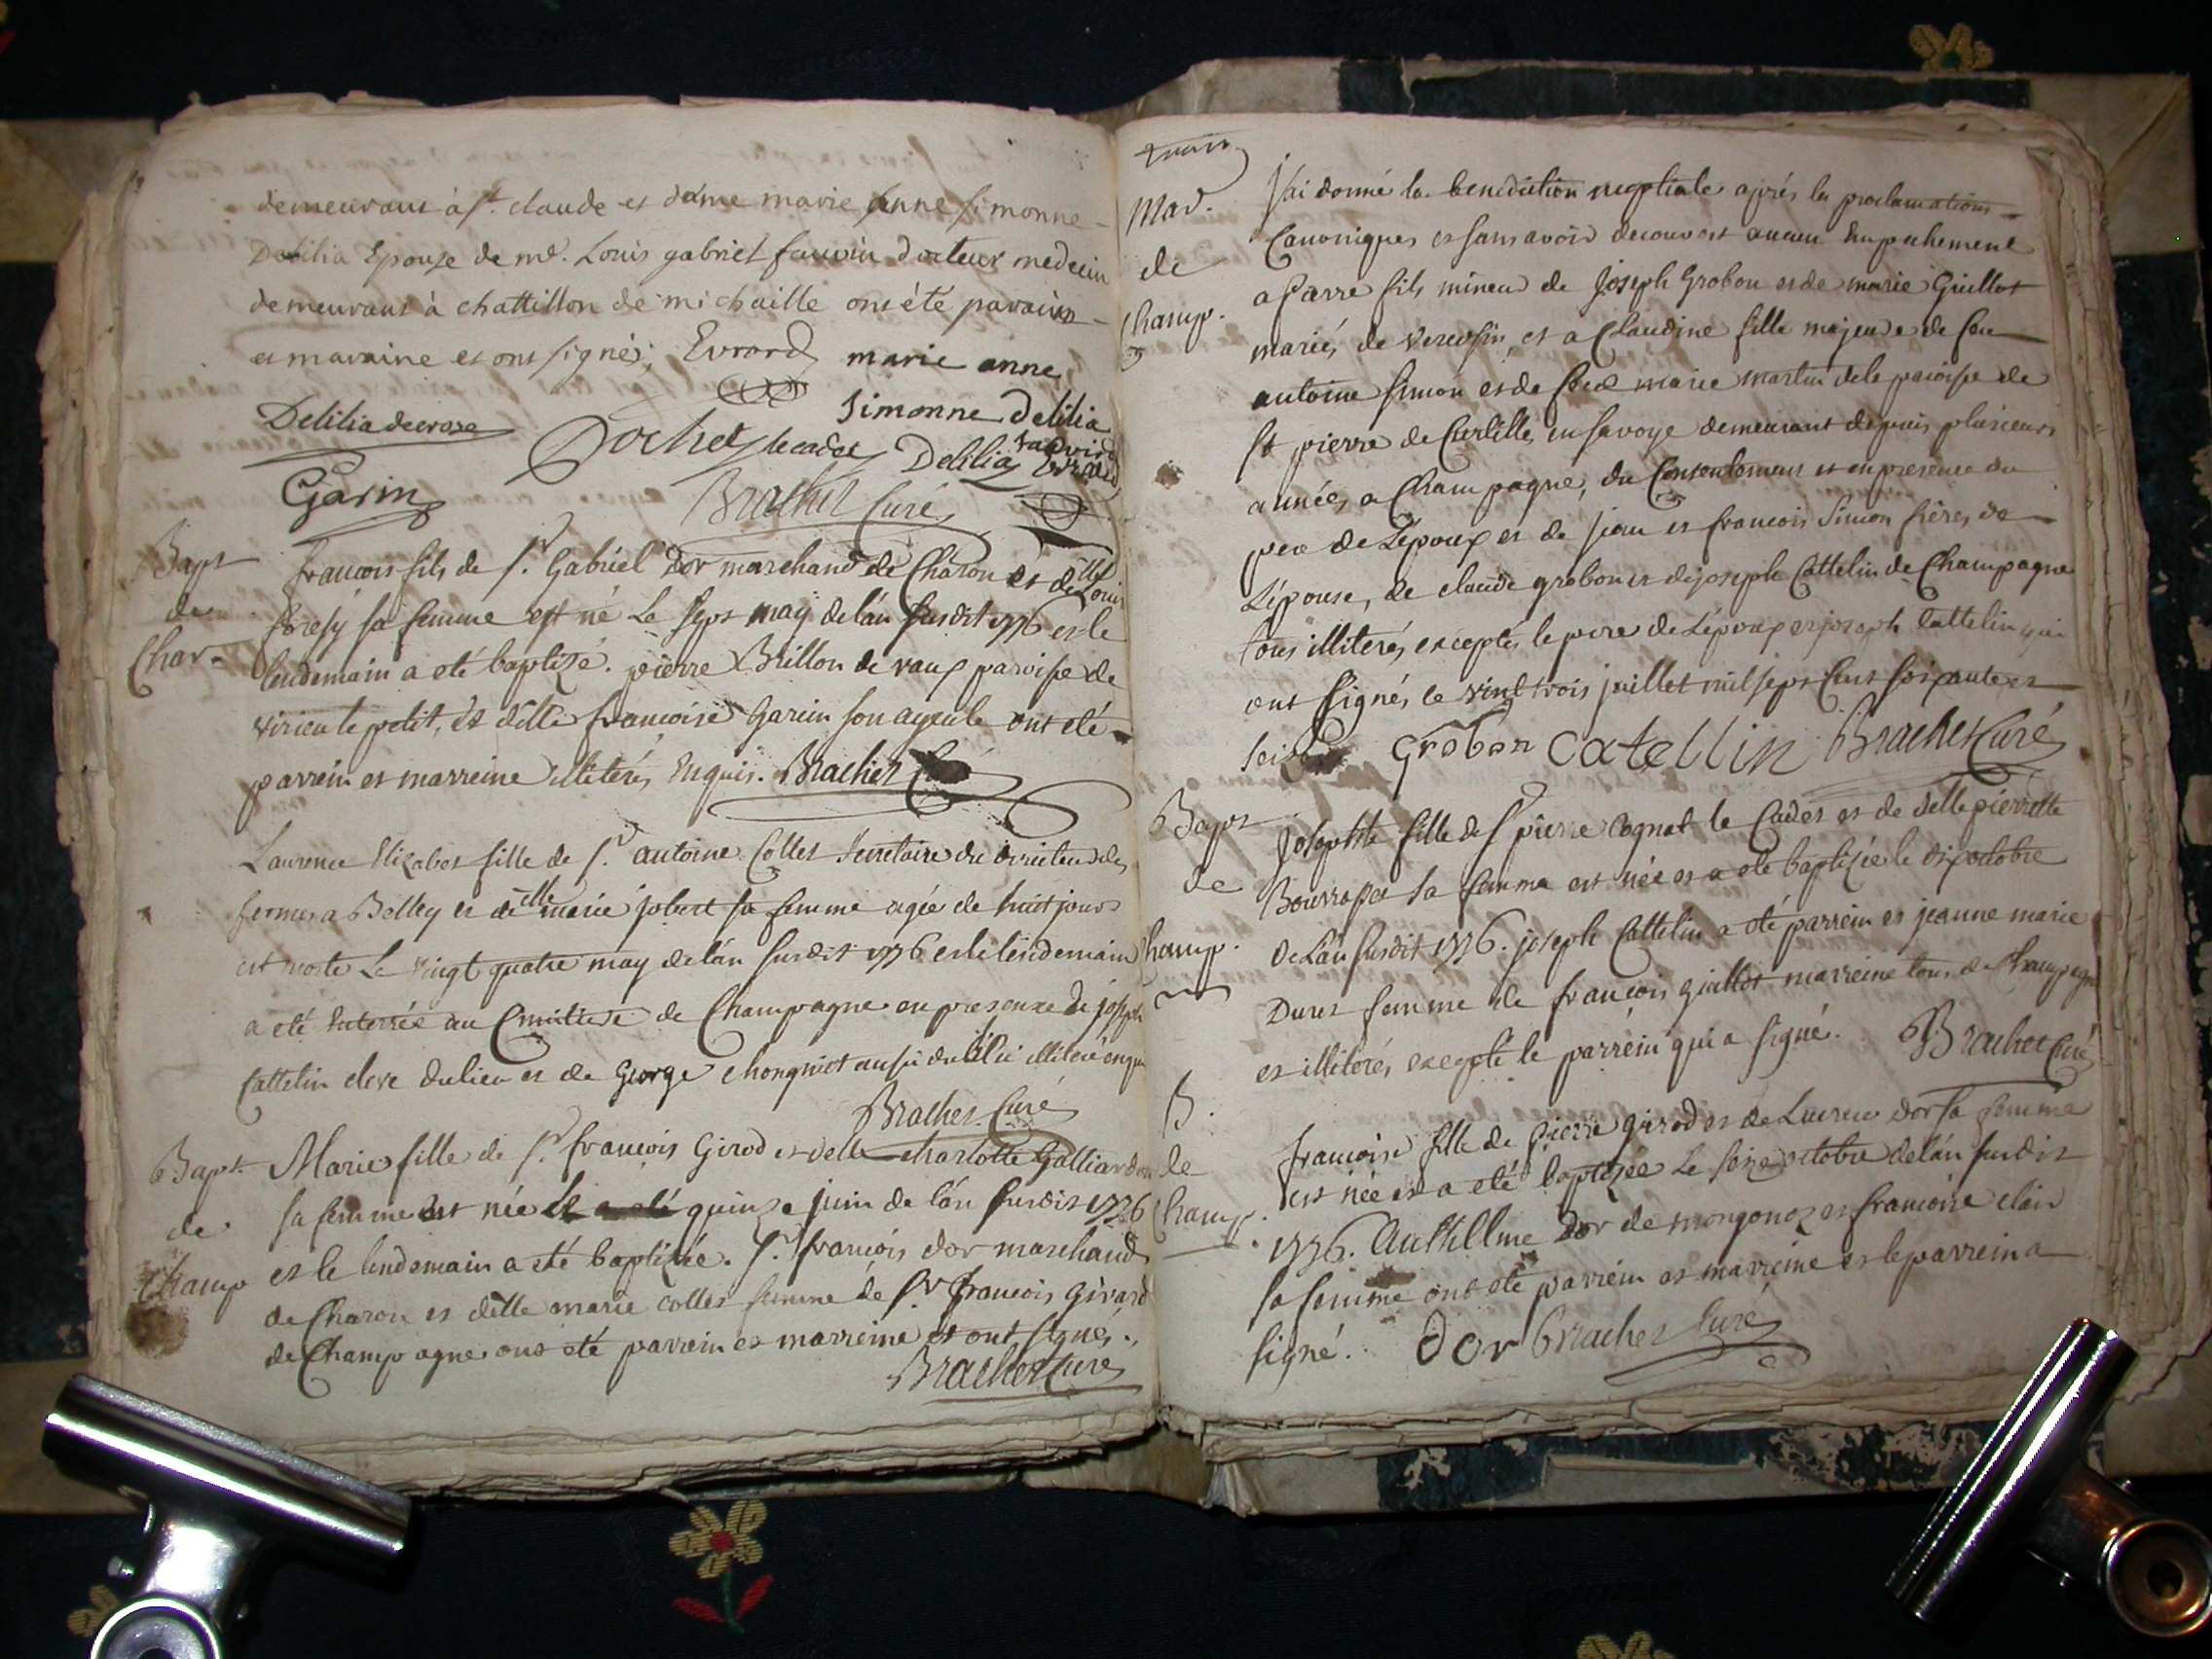 demeurant à st. claude et dame marie anne simonne
Delilia Epouse de mr. Louis gabriel fauvin docteur medecin
demeurant à chattillon de michaille ont été parains
et maraine et ont signés; Evrard marie anne
simonne delilia
Delilia decroze Dochet lecadet Delilia Evrard
Garin Brachet Curé
Bapt
de
Char.
francois fils de sr. Gabriel Dor marchand de Charon et de dlle Louis
foresÿ sa femme est né Le sept may de l'an susdit 1776 et le
lendemain a eté baptizé. pierre Brillon de vaux paroisse de
virieu le petit, et dlle francoise Garin son ayeule ont eté
parrein et marreine illiterés Enquis. Brachet Curé
Laurence Elizabet fille de sr. antoine Collet secretaire du directeur des
fermes a Belley et de dlle marie jobert sa femme agée de huit jours
est morte Le vingt quatre may de l'an susdit 1776 et le lendemain
a eté Enterrée au Cimitiere de Champagne en presence de joseph
Cattelin cleve du lieu et de George chongniet aussi du lieu illiteré enquis
Brachet Curé
Bapt.
de
Champ
Marie fille de sr. francois Girod et delle charlotte Galliardon
sa femme est née quinze juin de l'an susdit 1776
et le lendemain a eté baptizée. sr. francois dor marchand
de Charon et dlle marie collet femme de sr francois Girard
de Champagne ont eté parrein et marreine et ont signés.
Brachet Curé
Mar.
de
Champ.
J'ai donné la benediction nuptiale aprés les proclamations
Canoniques et sans avoir decouvert aucun Empechement
a pierre fils mineur de Joseph Grobon et de marie Guillot
mariés de vereosin et a Claudine fille majeure de feu
antoine simon et de feue marie martin de la paroisse de
st pierre de Curtille en savoye demeurant depuis plusieurs
années a Champagne, du Consentement et en presence du
pere de L'epoux et de jean et francois Simon freres de
L'épouse, de claude grobon et de joseph Cattelin de Champagne
tous illiterés exceptés le pere de L'epoux et joseph Cattelin qui
ont signés le vingt trois juillet mil sept Cent soixante et
seize Grobon Catellin Brachet Curé
Bapt
de
Champ.
Josephte fille de sr pierre Cognat le Cadet et de delle pierrette
Bourrozet sa femme est née et a eté baptizée le dix octobre
de L'an susdit 1776. joseph Cattelin a eté parrein et jeanne marie
Duret femme de francois guillot marreine tous de Champagne
et illiterés excepté le parrein qui a signé. Brachet Curé
B.
de
Champ.
francoise fille de pierre girod et de Lucrece dor sa femme
est née et a eté baptizée Le seize octobre de l'an susdit
1776. Anthelme Dor de mongonoz et francoise clair
sa femme ont eté parrein et marreine et le parrein a
signé. Dor Brachet Curé